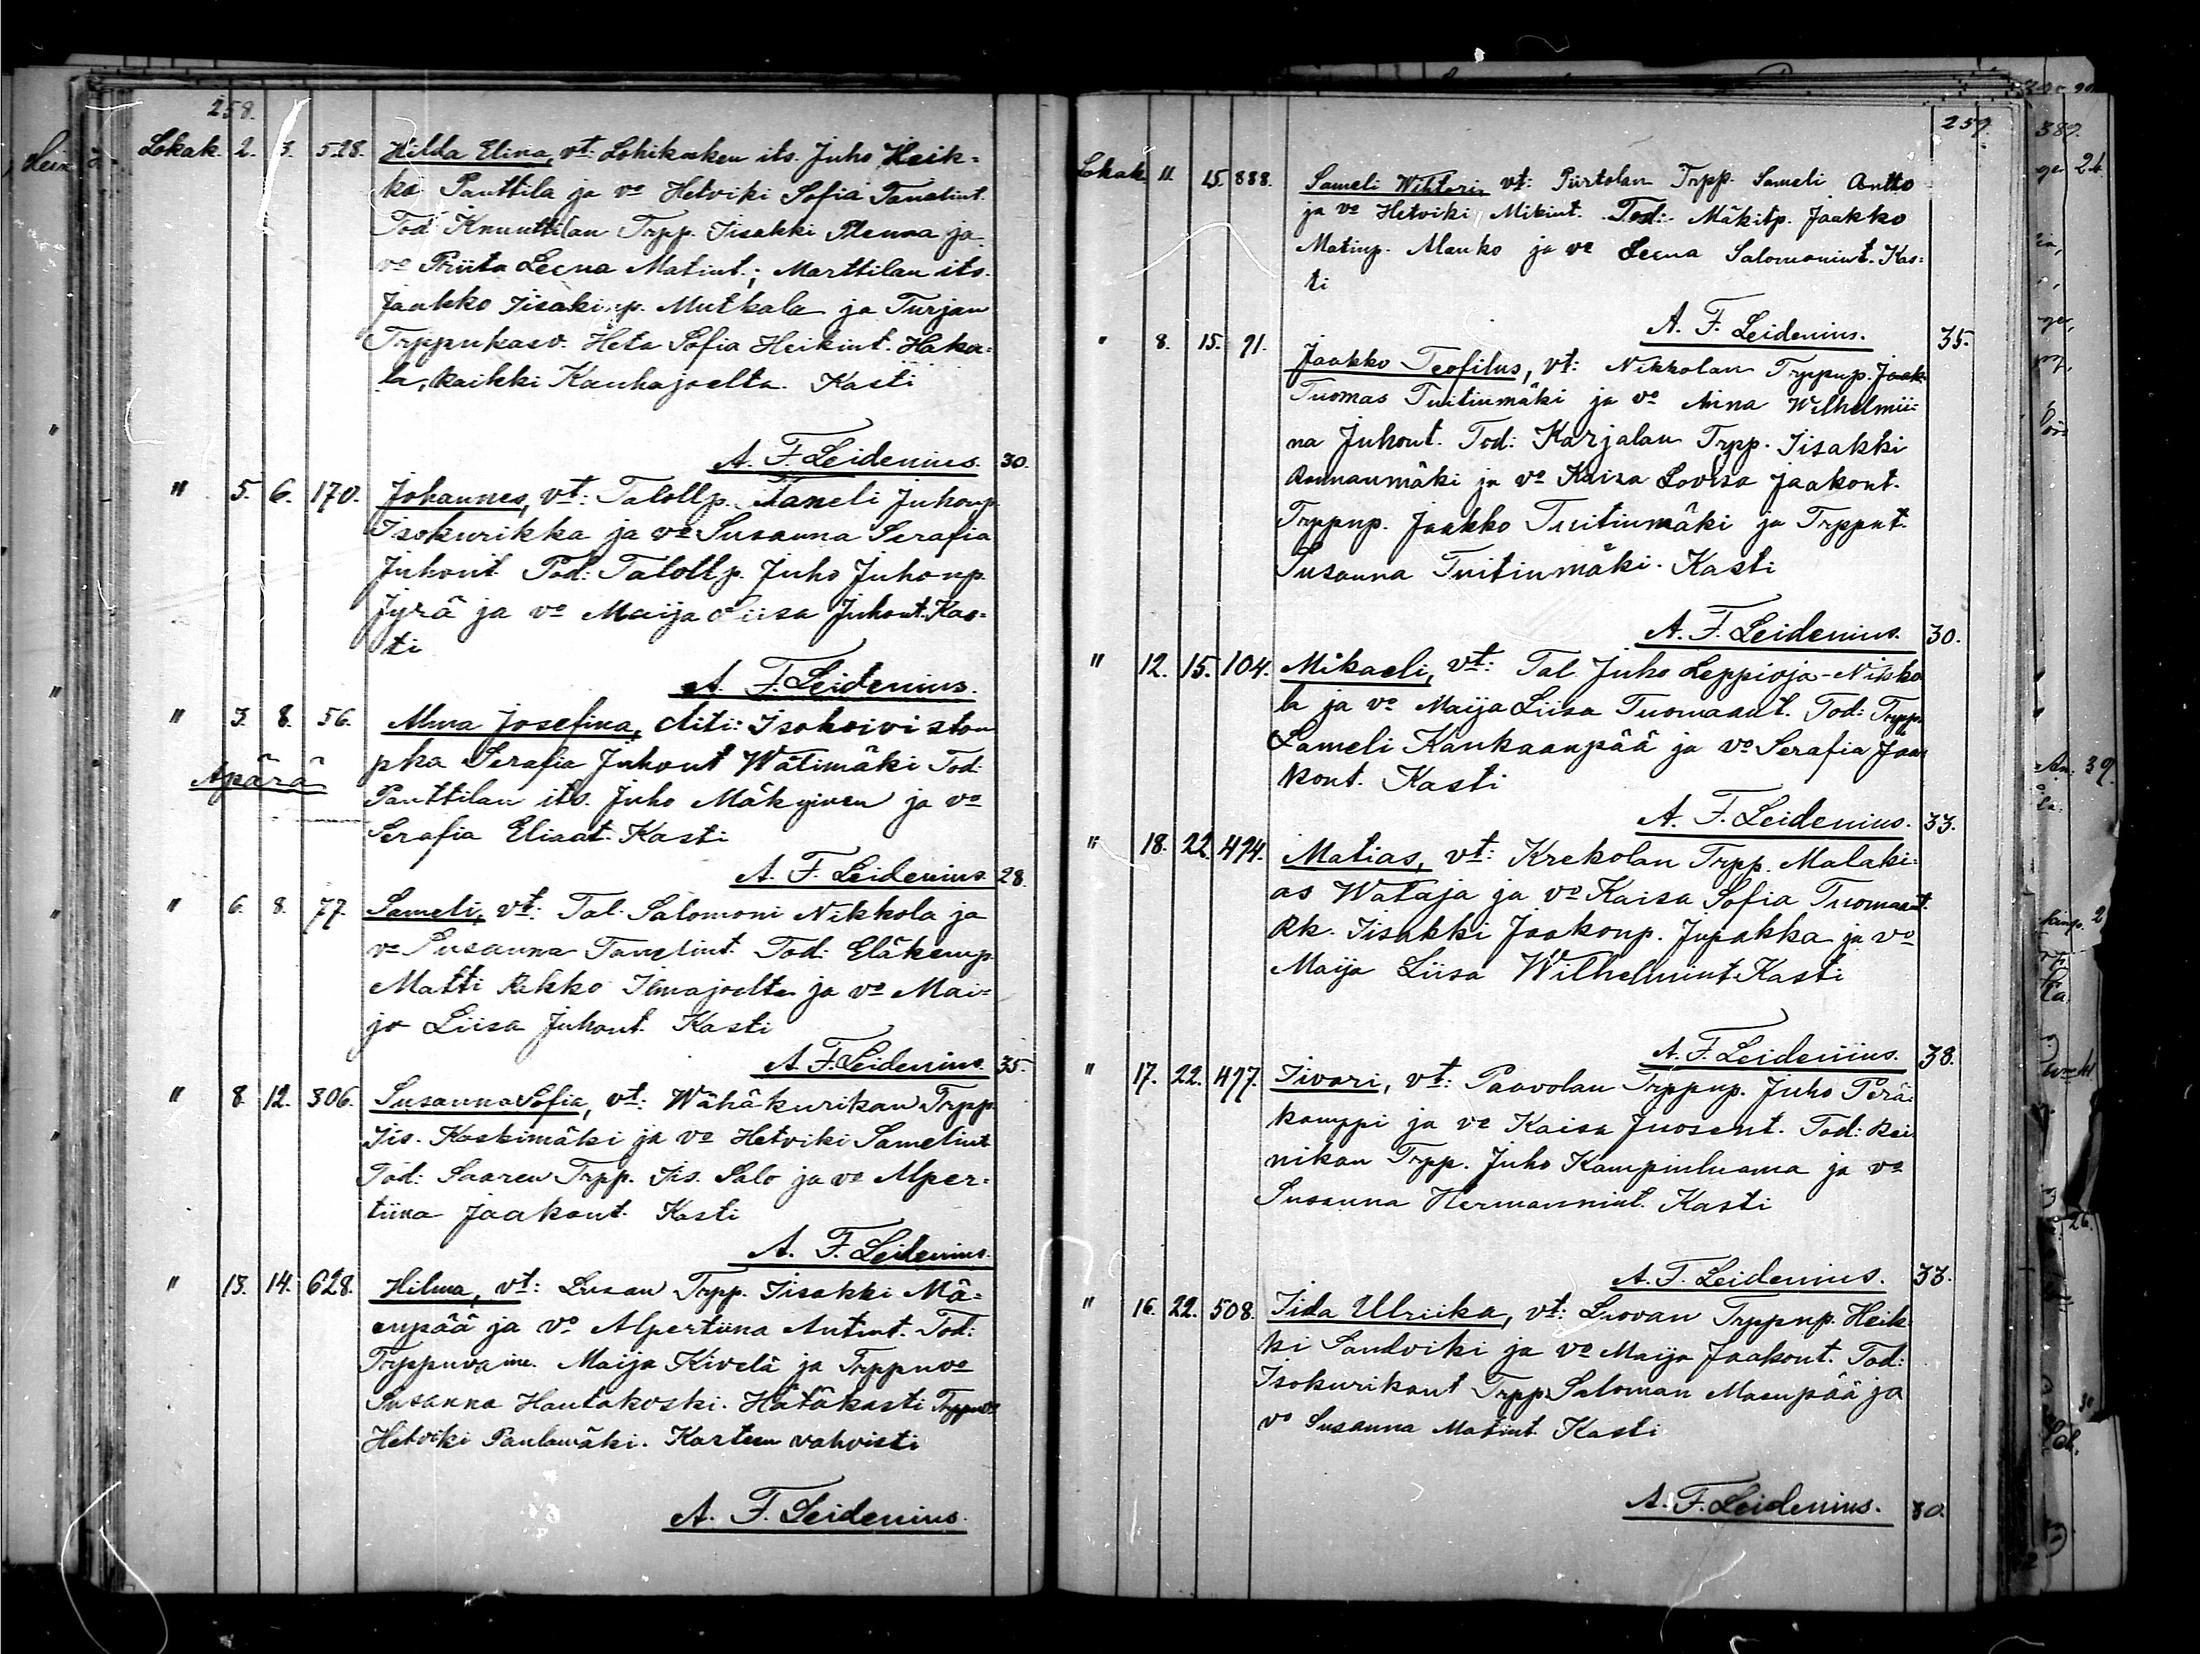 258.
Lokak. 2. 3. 528. Hilda Elina, vt: Lohikosken its. Juho Heik-
ka Panttila ja vo Hetviki Sofia Tanelint.
Tod: Knuuttilan Trpp. Iisakki ja
vo Priita Leena Matint.; Marttilan its.
Jaakko Iisakinp. Mutkala ja Turjan
Trppukasv. Heta Sofia Heikint. Haka-
la, kaikki Kauhajoelta. Kasti
A. F. Leidenius. 30.
" 5. 6. 170. Johannes, vt: Talollp. Taneli Juhonp.
Isokurikka ja vo Susanna Serafia
Juhont. Tod: Talollp. Juho Juhonp.
Jyrä ja vo Maija Liisa Juhont. Kas-
ti
A. F. Leidenius.
" 3. 8. 56. Alma Josefina, Äiti: Isokoiviston
pka Serafia Juhont Wätimäki Tod:
Äpärä
Panttilan its. Juho Mäkynen ja vo
Serafia Eliaat. Kasti
A. F. Leidenius. 28.
" 6. 8. 77. Sameli, vt: Tal. Salomoni Nikkola ja
vo Susanna Tanelint. Tod: Eläkemp.
Matti Rekko Ilmajoelta ja vo Mai-
ja Liisa Juhont. Kasti
A. F. Leidenius. 35.
" 8. 12. 306. Susanna Sofia, vt: Wähäkurikan Trpp.
Iis. Koskimäki ja vo Hetviki Samelint.
Tod: Saaren Trpp. Iis. Salo ja vo Alper-
tiina Jaakont. Kasti
A. F. Leidenius.
" 13. 14. 628. Hilma, vt: Lusan Trpp. Iisakki Mä-
enpää ja vo Alpertiina Antint. Tod:
Trppuvaim. Maija Kivelä ja Trppuvo
Susanna Hautakoski. Hätäkasti Trppuvo
Hetviki Paulamäki. Kasteen vahvisti
A. F. Leidenius.
259.
Lokak. 11. 15. 888. Sameli Wihtori, vt: Piirtolan Trpp. Sameli Antto
ja vo Hetviki Mikint. Tod: Mäkitp. Jaakko
Matinp. Alanko ja vo Leena Salomonint. Kas-
ti
A. F. Leidenius. 35.
" 8. 15. 91. Jaakko Teofilus, vt: Nikkolan Trppup. Jaak-
Tuomas Tuitiumäki ja vo Anna Wilhelmii-
na Juhont. Tod: Karjalan Trpp. Iisakki
Rannanmäki ja vo Kaisa Lovisa Jaakont.
Trppup. Jaakko Tuitiumäki ja Trpput.
Susanna Tuitiumäki. Kasti
A. F. Leidenius. 30.
" 12. 15. 104. Mikaeli, vt: Tal. Juho Leppioja-Nikko
la ja vo Maija Liisa Tuomaant. Tod: Trpp.
Sameli Kankaanpää ja vo Serafia Jaa-
kont. Kasti
A. F. Leidenius. 33.
" 18. 22. 494. Matias, vt: Krekolan Trpp. Malaki-
as Wataja ja vo Kaisa Sofia Tuomaant.
Rk. Iisakki Jaakonp. Jupakka ja vo
Maija Liisa Wilhelmint. Kasti
A. F. Leidenius. 38.
" 17. 22. 477. Iivari, vt: Paavolan Trppup. Juho Perä-
kamppi ja vo Kaisa Juosent. Tod: Rei-
nikan Trpp. Juho Kampinluoma ja vo
Susanna Hermannint. Kasti
A. F. Leidenius. 33.
" 16. 22. 508. Iida Ulriika, vt: Luovan Trppup. Heik-
ki Sandviki ja vo Maija Jaakont. Tod:
Isokurikant Trpp. Saloman Maenpää ja
vo Susanna Matint. Kasti
A. F. Leidenius. 30.